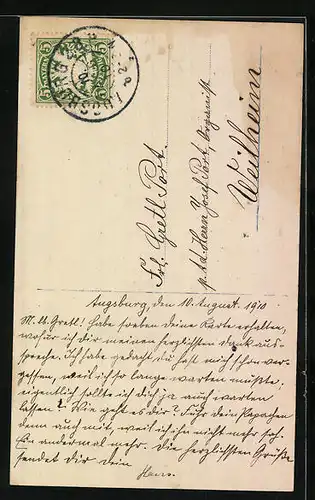 5 BAYERN 5
AUGSBURG
Frl. Gretl Port.
p. Ad. Herrn Josef Port, Organist
Weilheim
Augsburg, den 10. August 1910
M. lb. Gretl! Habe soeben deine Karte erhalten,
wofür ich dir meinen herzlichsten Dank aus-
spreche. Ich habe gedacht du hast mich schon ver-
gessen, weil ich so lange warten müßte,
eigentlich sollte ich dich ja auch warten
lassen? Wie geht es dir? Fuhr dein Papachen
denn auch mit, weil ich ihn nicht mehr sah.
Ein andermal mehr. Die herzlichsten Grüße
sendet dir dein
Hans.